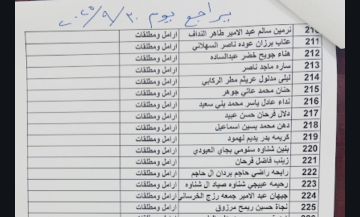 يراجع يوم ٣٠ / ٩ / ٢٠٢٥
210 نرمين سالم عبد الامير طاهر النداف ارامل ومطلقات
211 عتاب برزان عوده ناصر السهلاني ارامل ومطلقات
212 هناء جويح خضر عبدالساده ارامل ومطلقات
213 ساره ماجد ناصر ارامل ومطلقات
214 ليلى مدلول عريثم مطر الركابي ارامل ومطلقات
215 حنان محمد عاتي جوهر ارامل ومطلقات
216 نداء عادل ياسر محمد بني سعيد ارامل ومطلقات
217 دلال فرحان حسن عبيد ارامل ومطلقات
218 دهن محمد يسين اسماعيل ارامل ومطلقات
219 كريمه بدر يديم لهمود ارامل ومطلقات
220 بنين شناوه سلومي بجاي العبودي ارامل ومطلقات
221 زينب فاضل فرحان ارامل ومطلقات
222 رابحه راضي حاجم بردان ال حاجم ارامل ومطلقات
223 رحيمه عبيجي شناوه صياد ال شناوه ارامل ومطلقات
224 جيهان عبد الامير جمعه رزج الخرساني ارامل ومطلقات
225 نجاة حسين ريمح مرزوق ارامل ومطلقات